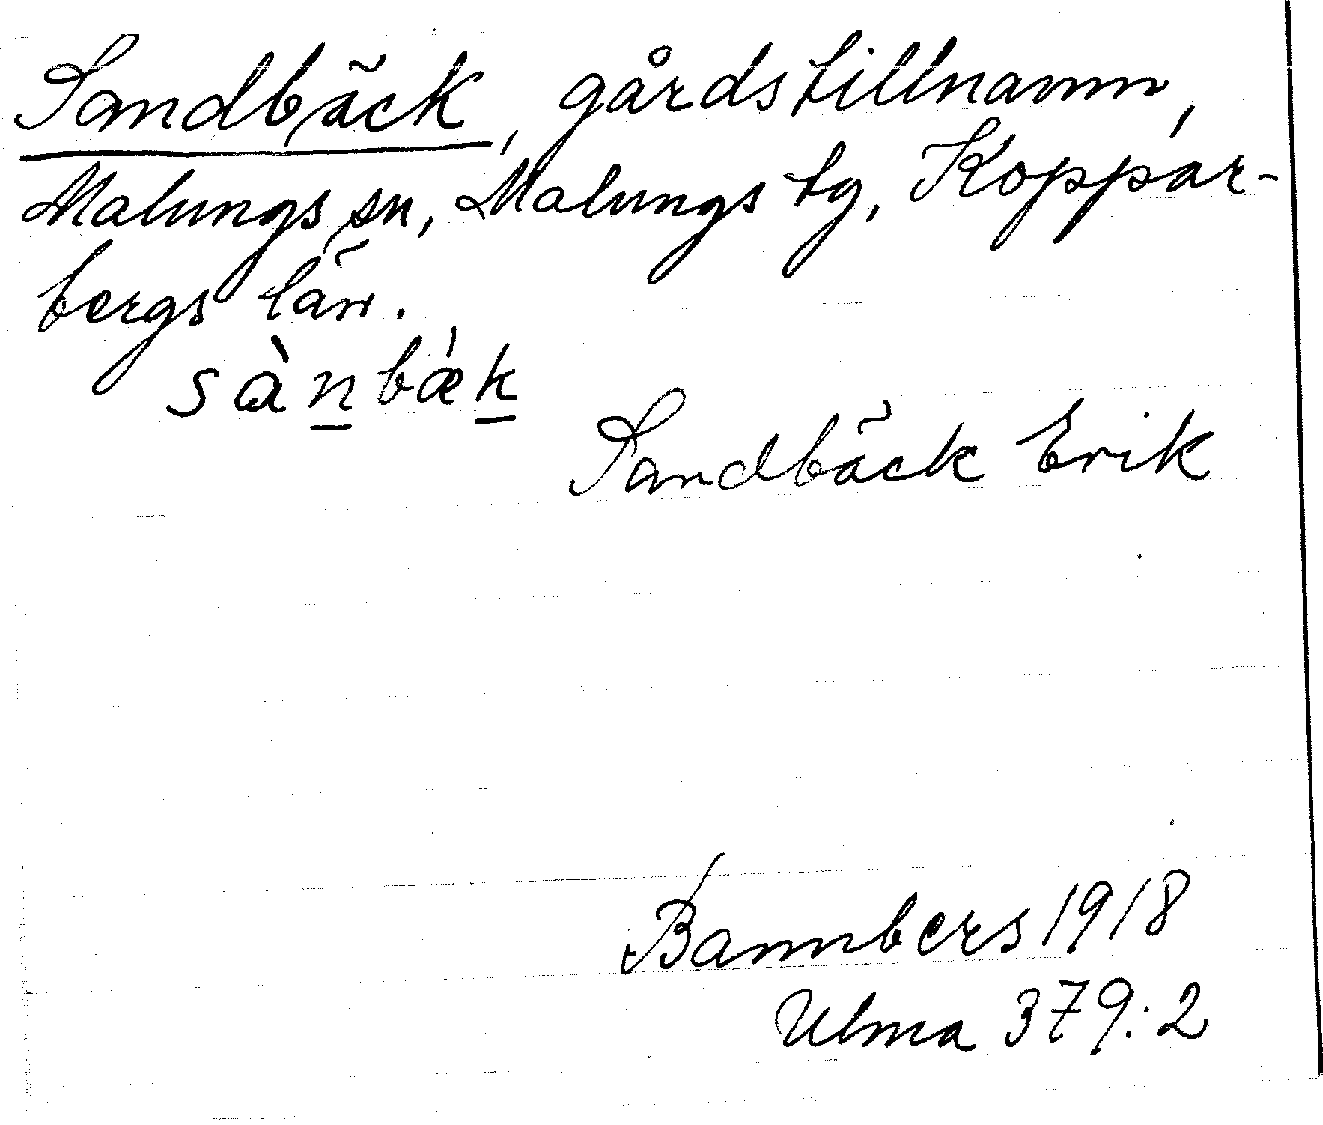 Sandbäck, gårdstillnamn,
Malungs sn, Malungs tg, Koppar-
bergs län.
sàn̲bǽk̲
Sandbäck Erik
Bannbers 1918
Ulma 379:2